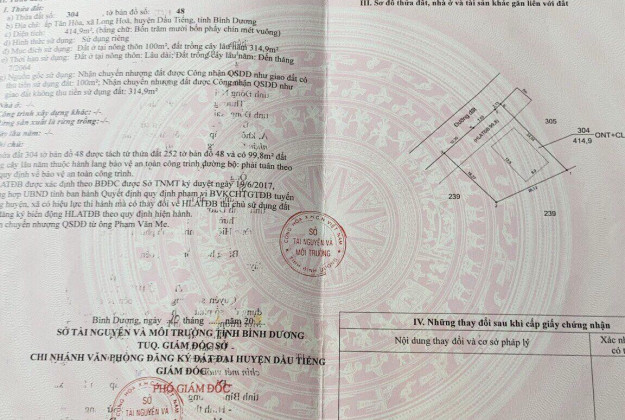 1. Thửa đất:
a) Thửa đất số: 304 , tờ bản đồ số: 48
b) Địa chỉ: ấp Tân Hòa, xã Long Hoà, huyện Dầu Tiếng, tỉnh Bình Dương
c) Diện tích: 414,9m², (bằng chữ: Bốn trăm mười bốn phẩy chín mét vuông)
d) Hình thức sử dụng: Sử dụng riêng
đ) Mục đích sử dụng: Đất ở tại nông thôn 100m², đất trồng cây lâu năm 314,9m²
e) Thời hạn sử dụng: Đất ở tại nông thôn: Lâu dài; Đất trồng cây lâu năm: Đến tháng
7/2064
g) Nguồn gốc sử dụng: Nhận chuyển nhượng đất được Công nhận QSDĐ như giao đất có
thu tiền sử dụng đất: 100m²; Nhận chuyển nhượng đất được Công nhận QSDĐ như
giao đất không thu tiền sử dụng đất: 314,9m²
Nhà ở: -/-
Công trình xây dựng khác: -/-
Rừng sản xuất là rừng trồng: -/-
Cây lâu năm: -/-
Ghi chú:
Thửa đất 304 tờ bản đồ 48 được tách từ thửa 252 tờ bản đồ 48 và có 99,8m² đất
trồng cây lâu năm thuộc hành lang bảo vệ an toàn công trình đường bộ: phải tuân theo
quy định về bảo vệ an toàn công trình.
HLATĐB được xác định theo BĐĐC được Sở TNMT ký duyệt ngày 19/6/2017,
hợp UBND tỉnh ban hành Quyết định quy định phạm vi BVKCHTGTĐB tuyến
huyện, xã có hiệu lực thi hành mà có thay đổi về HLATĐB thì chủ sử dụng đất
đăng ký biến động HLATĐB theo quy định hiện hành.
chuyển nhượng QSDĐ từ ông Phạm Văn Me.
Bình Dương, ngày tháng năm 20
SỞ TÀI NGUYÊN VÀ MÔI TRƯỜNG TỈNH BÌNH DƯƠNG
TUQ. GIÁM ĐỐC SỞ
CHI NHÁNH VĂN PHÒNG ĐĂNG KÝ ĐẤT ĐAI HUYỆN DẦU TIẾNG
GIÁM ĐỐC
PHÓ GIÁM ĐỐC
SỞ
TÀI NGUYÊN VÀ
MÔI TRƯỜNG
III. Sơ đồ thửa đất, nhà ở và tài sản khác gắn liền với đất
Đường đất
305
304
414,9
ONT+CL
239
239
CỘNG HÒA X.H.C.N VIỆT NAM
SỞ
TÀI NGUYÊN VÀ
MÔI TRƯỜNG
TỈNH BÌNH DƯƠNG
IV. Những thay đổi sau khi cấp giấy chứng nhận
Nội dung thay đổi và cơ sở pháp lý
Xác nh
có t